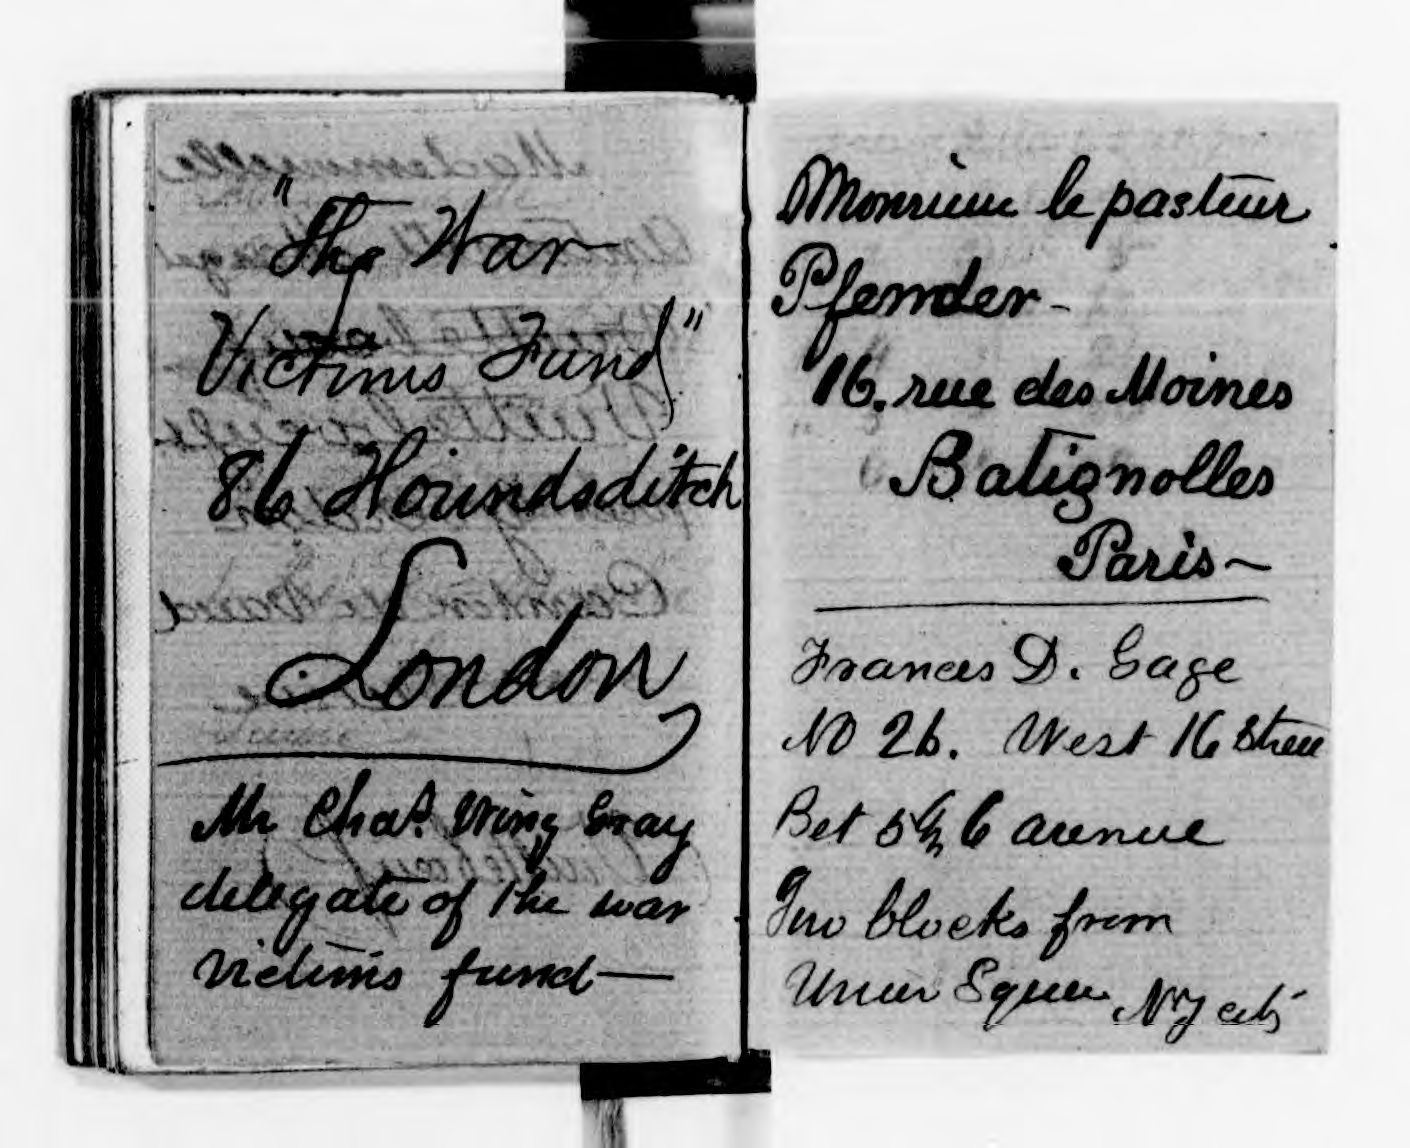 "The War
Victims Fund"
86 Houndsditch
London
Mr Chas. Wing Gray
delegate of the war
victims fund—
Monsieur le pasteur
Pfender-
16, rue des Moines
Batignolles
Paris~
Frances D. Gage
NO 26. West 16 Street
Bet 5 & 6 avenue
Two blocks from
Union Square NY city